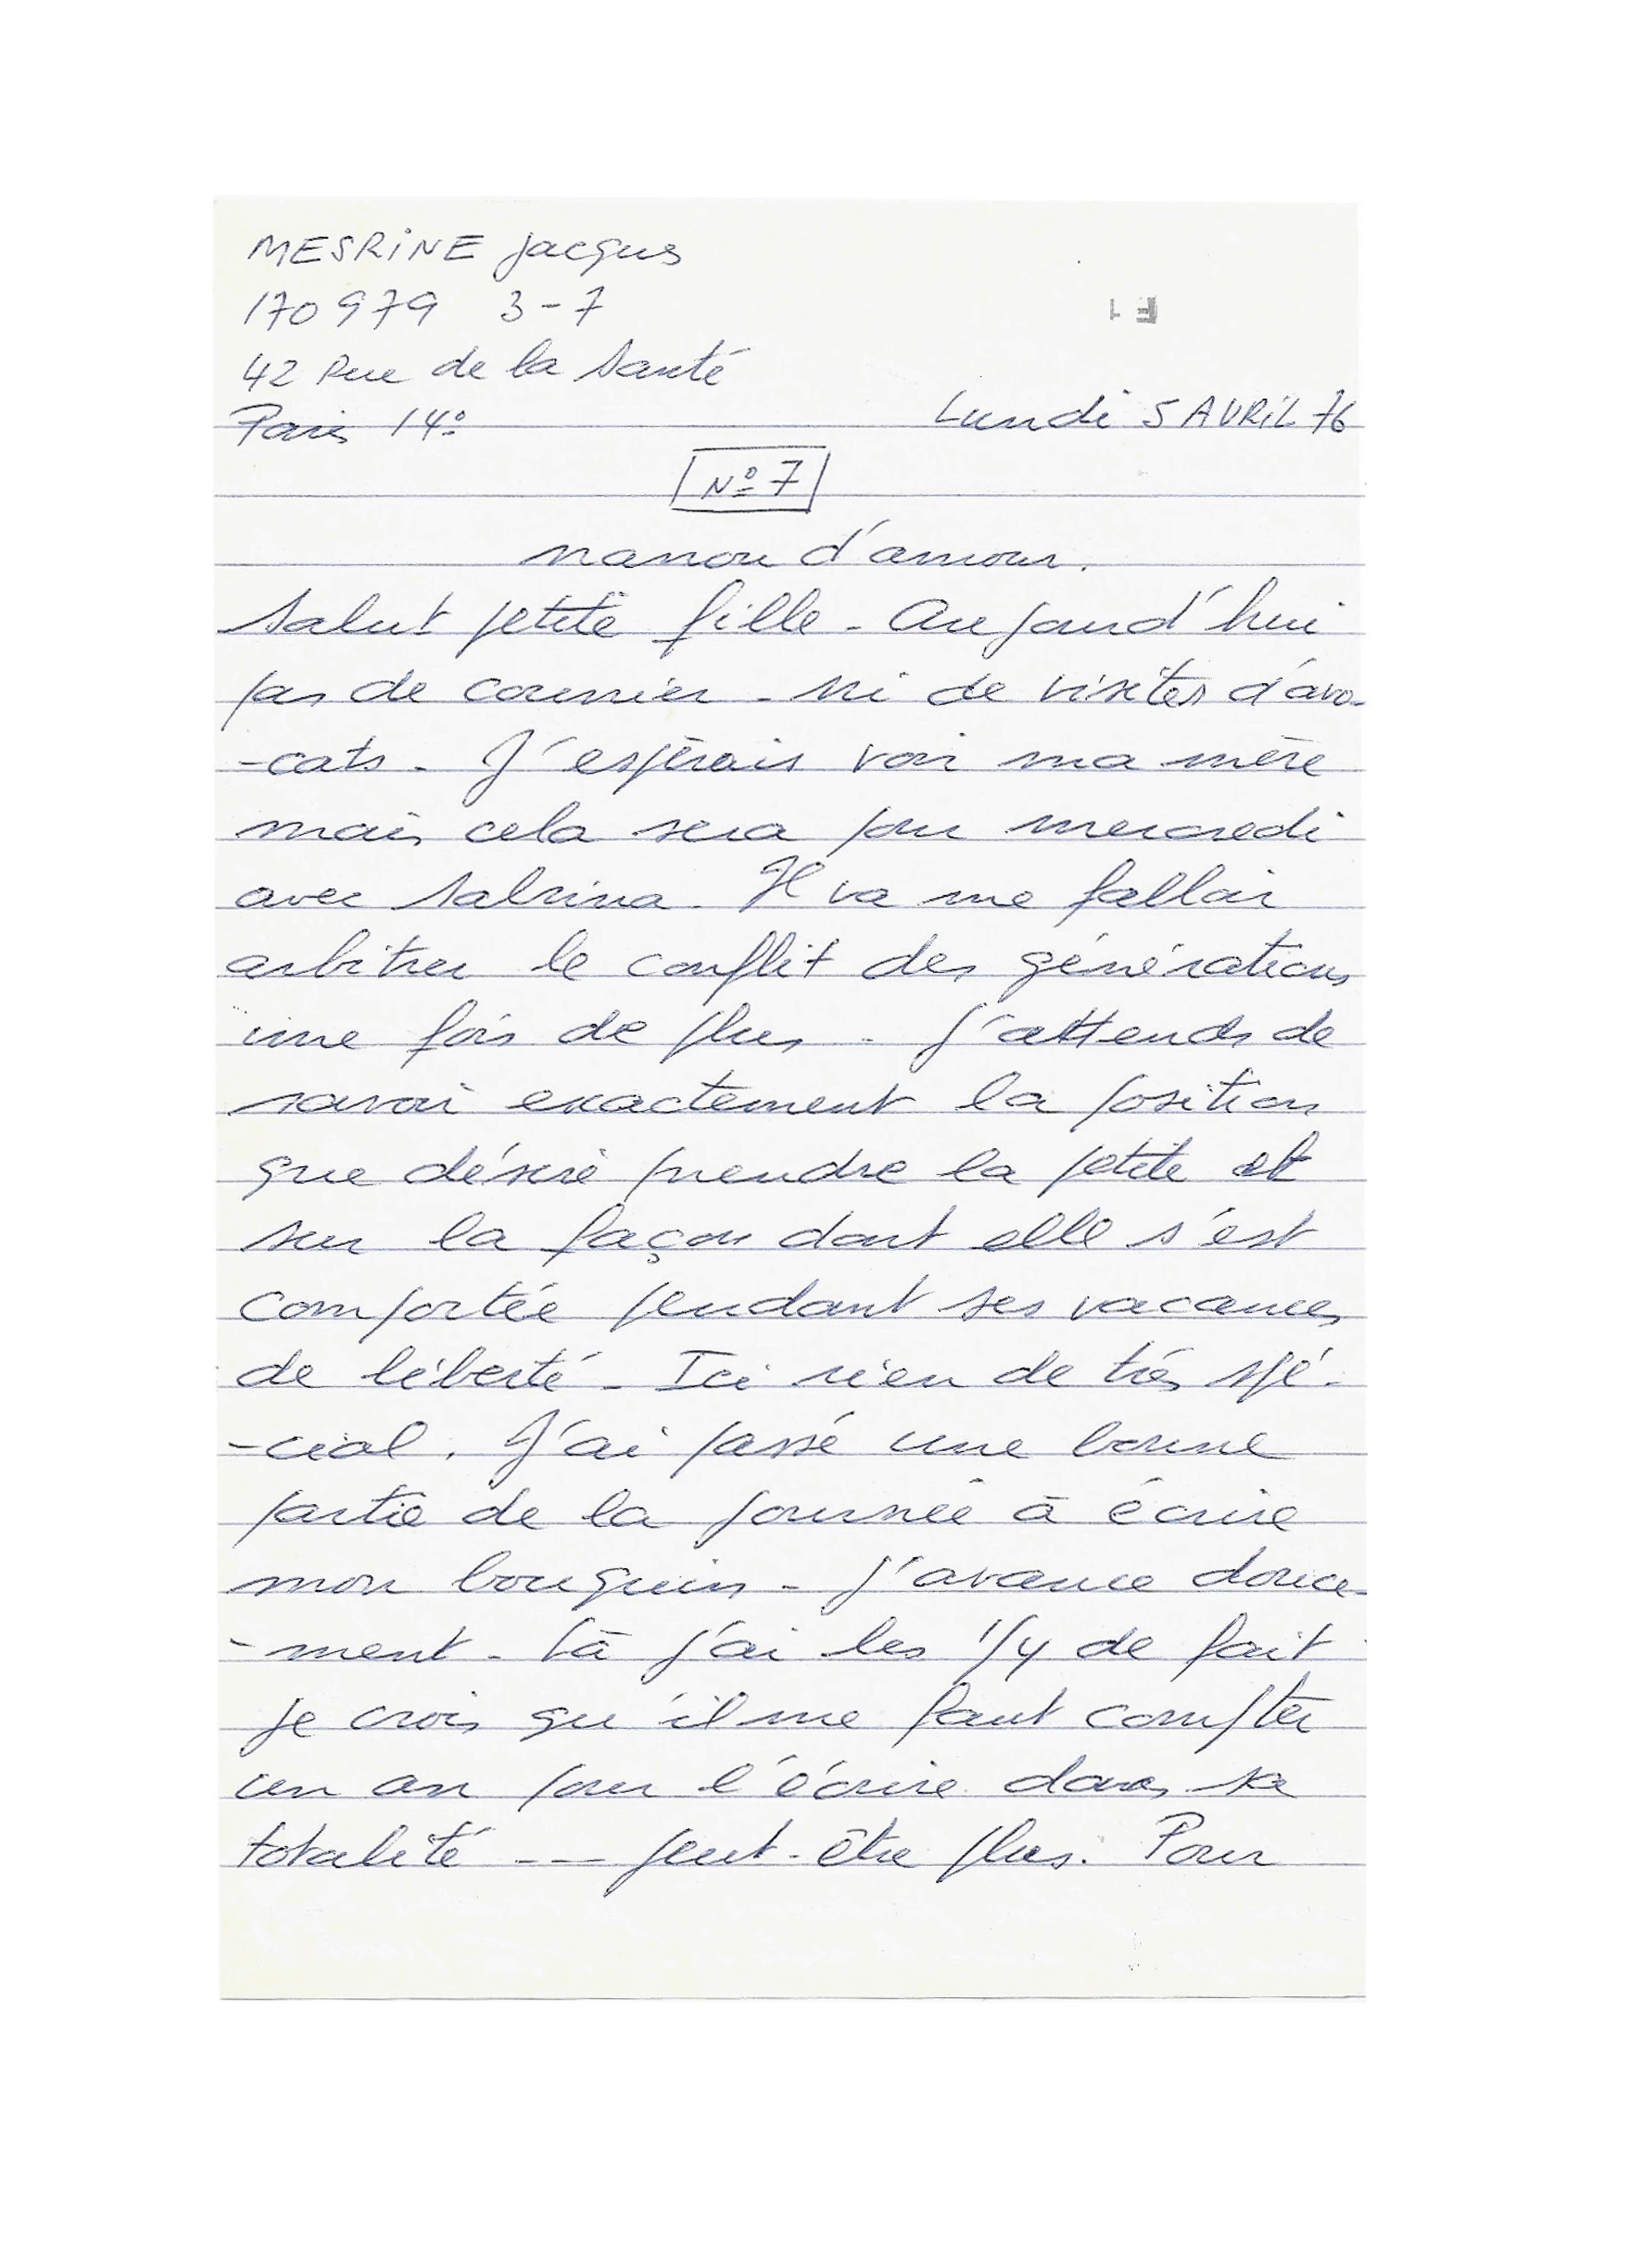 MESRINE Jacques
170979 3-7
42 Rue de la Santé
Paris 14º
Lundi 5 AVRIL 76
Nº 7
nanou d'amour.
Salut petite fille - Aujourd'hui
pas de courrier - ni de visites d'avo-
-cats - J'espérais voir ma mère
mais cela sera pour mercredi
avec Sabrina. Il va me falloir
arbitrer le conflit des générations
une fois de plus - J'attends de
savoir exactement la position
que désire prendre la petite et
sur la façon dont elle s'est
comportée pendant ses vacances
de liberté - Ici rien de très spé-
-cial. J'ai passé une bonne
partie de la journée à écrire
mon bouquin - J'avance douce-
-ment - Là j'ai les 1/4 de fait
je crois qu'il me faut compter
un an pour l'écrire dans sa
totalité --- peut-être plus. Pour
F 1